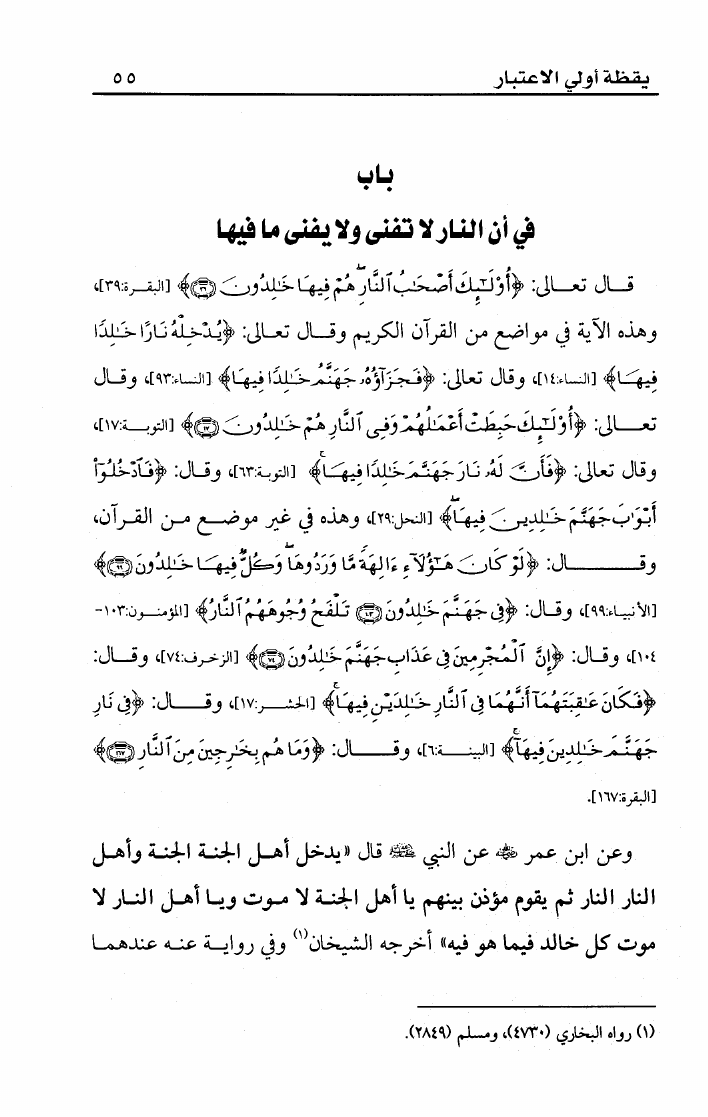 يقظة أولي الاعتبار ٥٥
باب
في أن النار لا تفنى ولا يفنى ما فيها
قال تعالى: ﴿أُوْلَٰٓئِكَ أَصْحَٰبُ ٱلنَّارِۖ هُمْ فِيهَا خَٰلِدُونَ ۝٣٩﴾ [البقرة:٣٩]،
وهذه الآية في مواضع من القرآن الكريم وقال تعالى: ﴿يُدْخِلْهُ نَارًا خَٰلِدًا
فِيهَا﴾ [النساء:١٤]، وقال تعالى: ﴿فَجَزَآؤُهُۥ جَهَنَّمُ خَٰلِدًا فِيهَا﴾ [النساء:٩٣]، وقال
تعالى: ﴿أُوْلَٰٓئِكَ حَبِطَتْ أَعْمَٰلُهُمْ وَفِى ٱلنَّارِ هُمْ خَٰلِدُونَ ۝١٧﴾ [التوبة:١٧]،
وقال تعالى: ﴿فَأَنَّ لَهُۥ نَارَ جَهَنَّمَ خَٰلِدًا فِيهَاۚ﴾ [التوبة:٦٣]، وقال: ﴿فَٱدْخُلُوٓاْ
أَبْوَٰبَ جَهَنَّمَ خَٰلِدِينَ فِيهَاۖ﴾ [النحل:٢٩]، وهذه في غير موضع من القرآن،
وقال: ﴿لَوْ كَانَ هَٰٓؤُلَآءِ ءَالِهَةً مَّا وَرَدُوهَاۖ وَكُلٌّ فِيهَا خَٰلِدُونَ ۝٩٩﴾
[الأنبياء:٩٩]، وقال: ﴿فِى جَهَنَّمَ خَٰلِدُونَ ۝١٠٣ تَلْفَحُ وُجُوهَهُمُ ٱلنَّارُ﴾ [المؤمنون:١٠٣-
١٠٤]، وقال: ﴿إِنَّ ٱلْمُجْرِمِينَ فِى عَذَابِ جَهَنَّمَ خَٰلِدُونَ ۝٧٤﴾ [الزخرف:٧٤]، وقال:
﴿فَكَانَ عَٰقِبَتَهُمَآ أَنَّهُمَا فِى ٱلنَّارِ خَٰلِدَيْنِ فِيهَاۚ﴾ [الحشر:١٧]، وقال: ﴿فِى نَارِ
جَهَنَّمَ خَٰلِدِينَ فِيهَآۚ﴾ [البينة:٦]، وقال: ﴿وَمَا هُم بِخَٰرِجِينَ مِنَ ٱلنَّارِ ۝١٦٧﴾
[البقرة:١٦٧].
وعن ابن عمر ﵁ عن النبي ﷺ قال «يدخل أهل الجنة الجنة وأهل
النار النار ثم يقوم مؤذن بينهم يا أهل الجنة لا موت ويا أهل النار لا
موت كل خالد فيما هو فيه» أخرجه الشيخان(١) وفي رواية عنه عندهما
(١) رواه البخاري (٤٧٣٠)، ومسلم (٢٨٤٩).